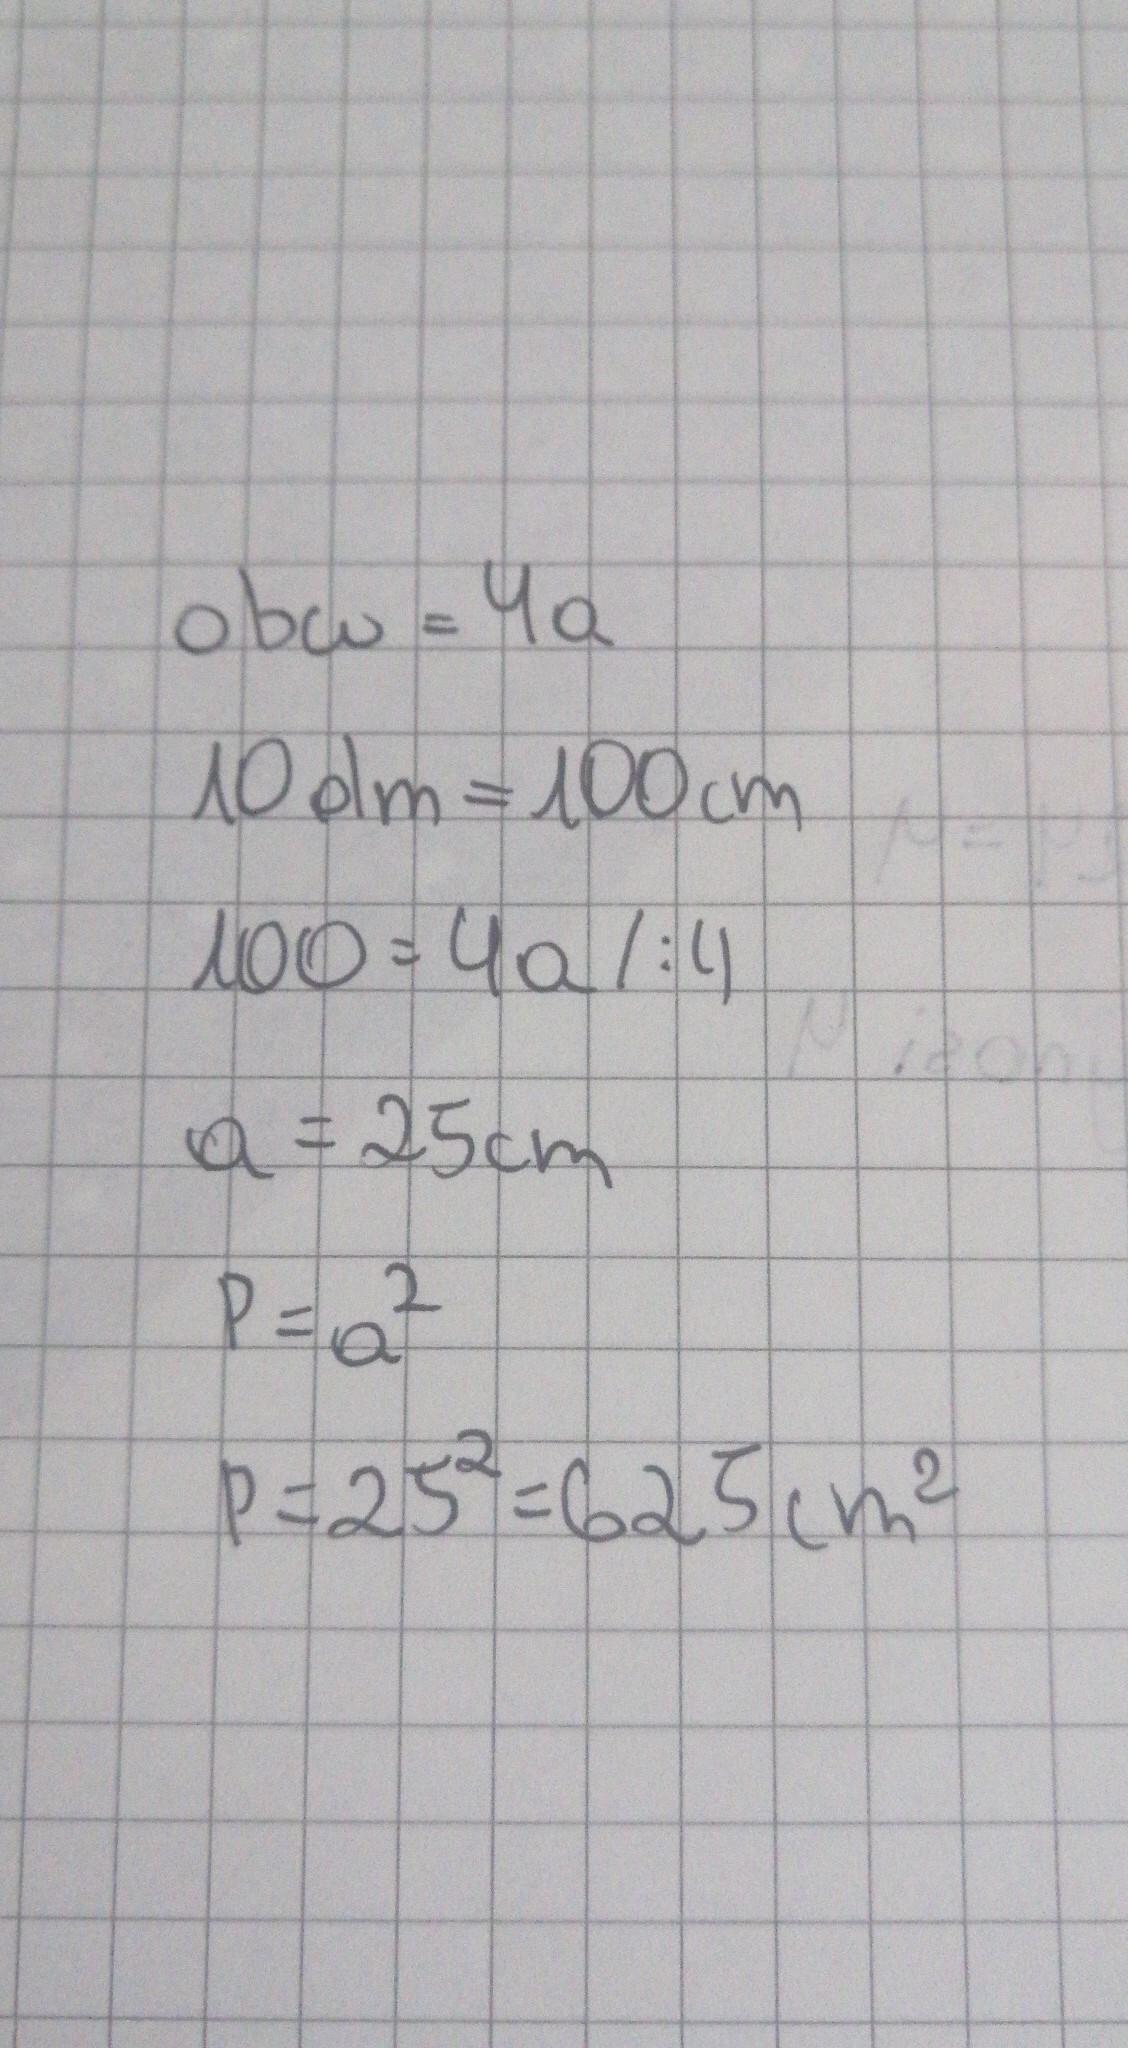 obw = 4a
10 dm = 100 cm
100 = 4a /:4
a = 25 cm
P = a²
P = 25² = 625 cm²